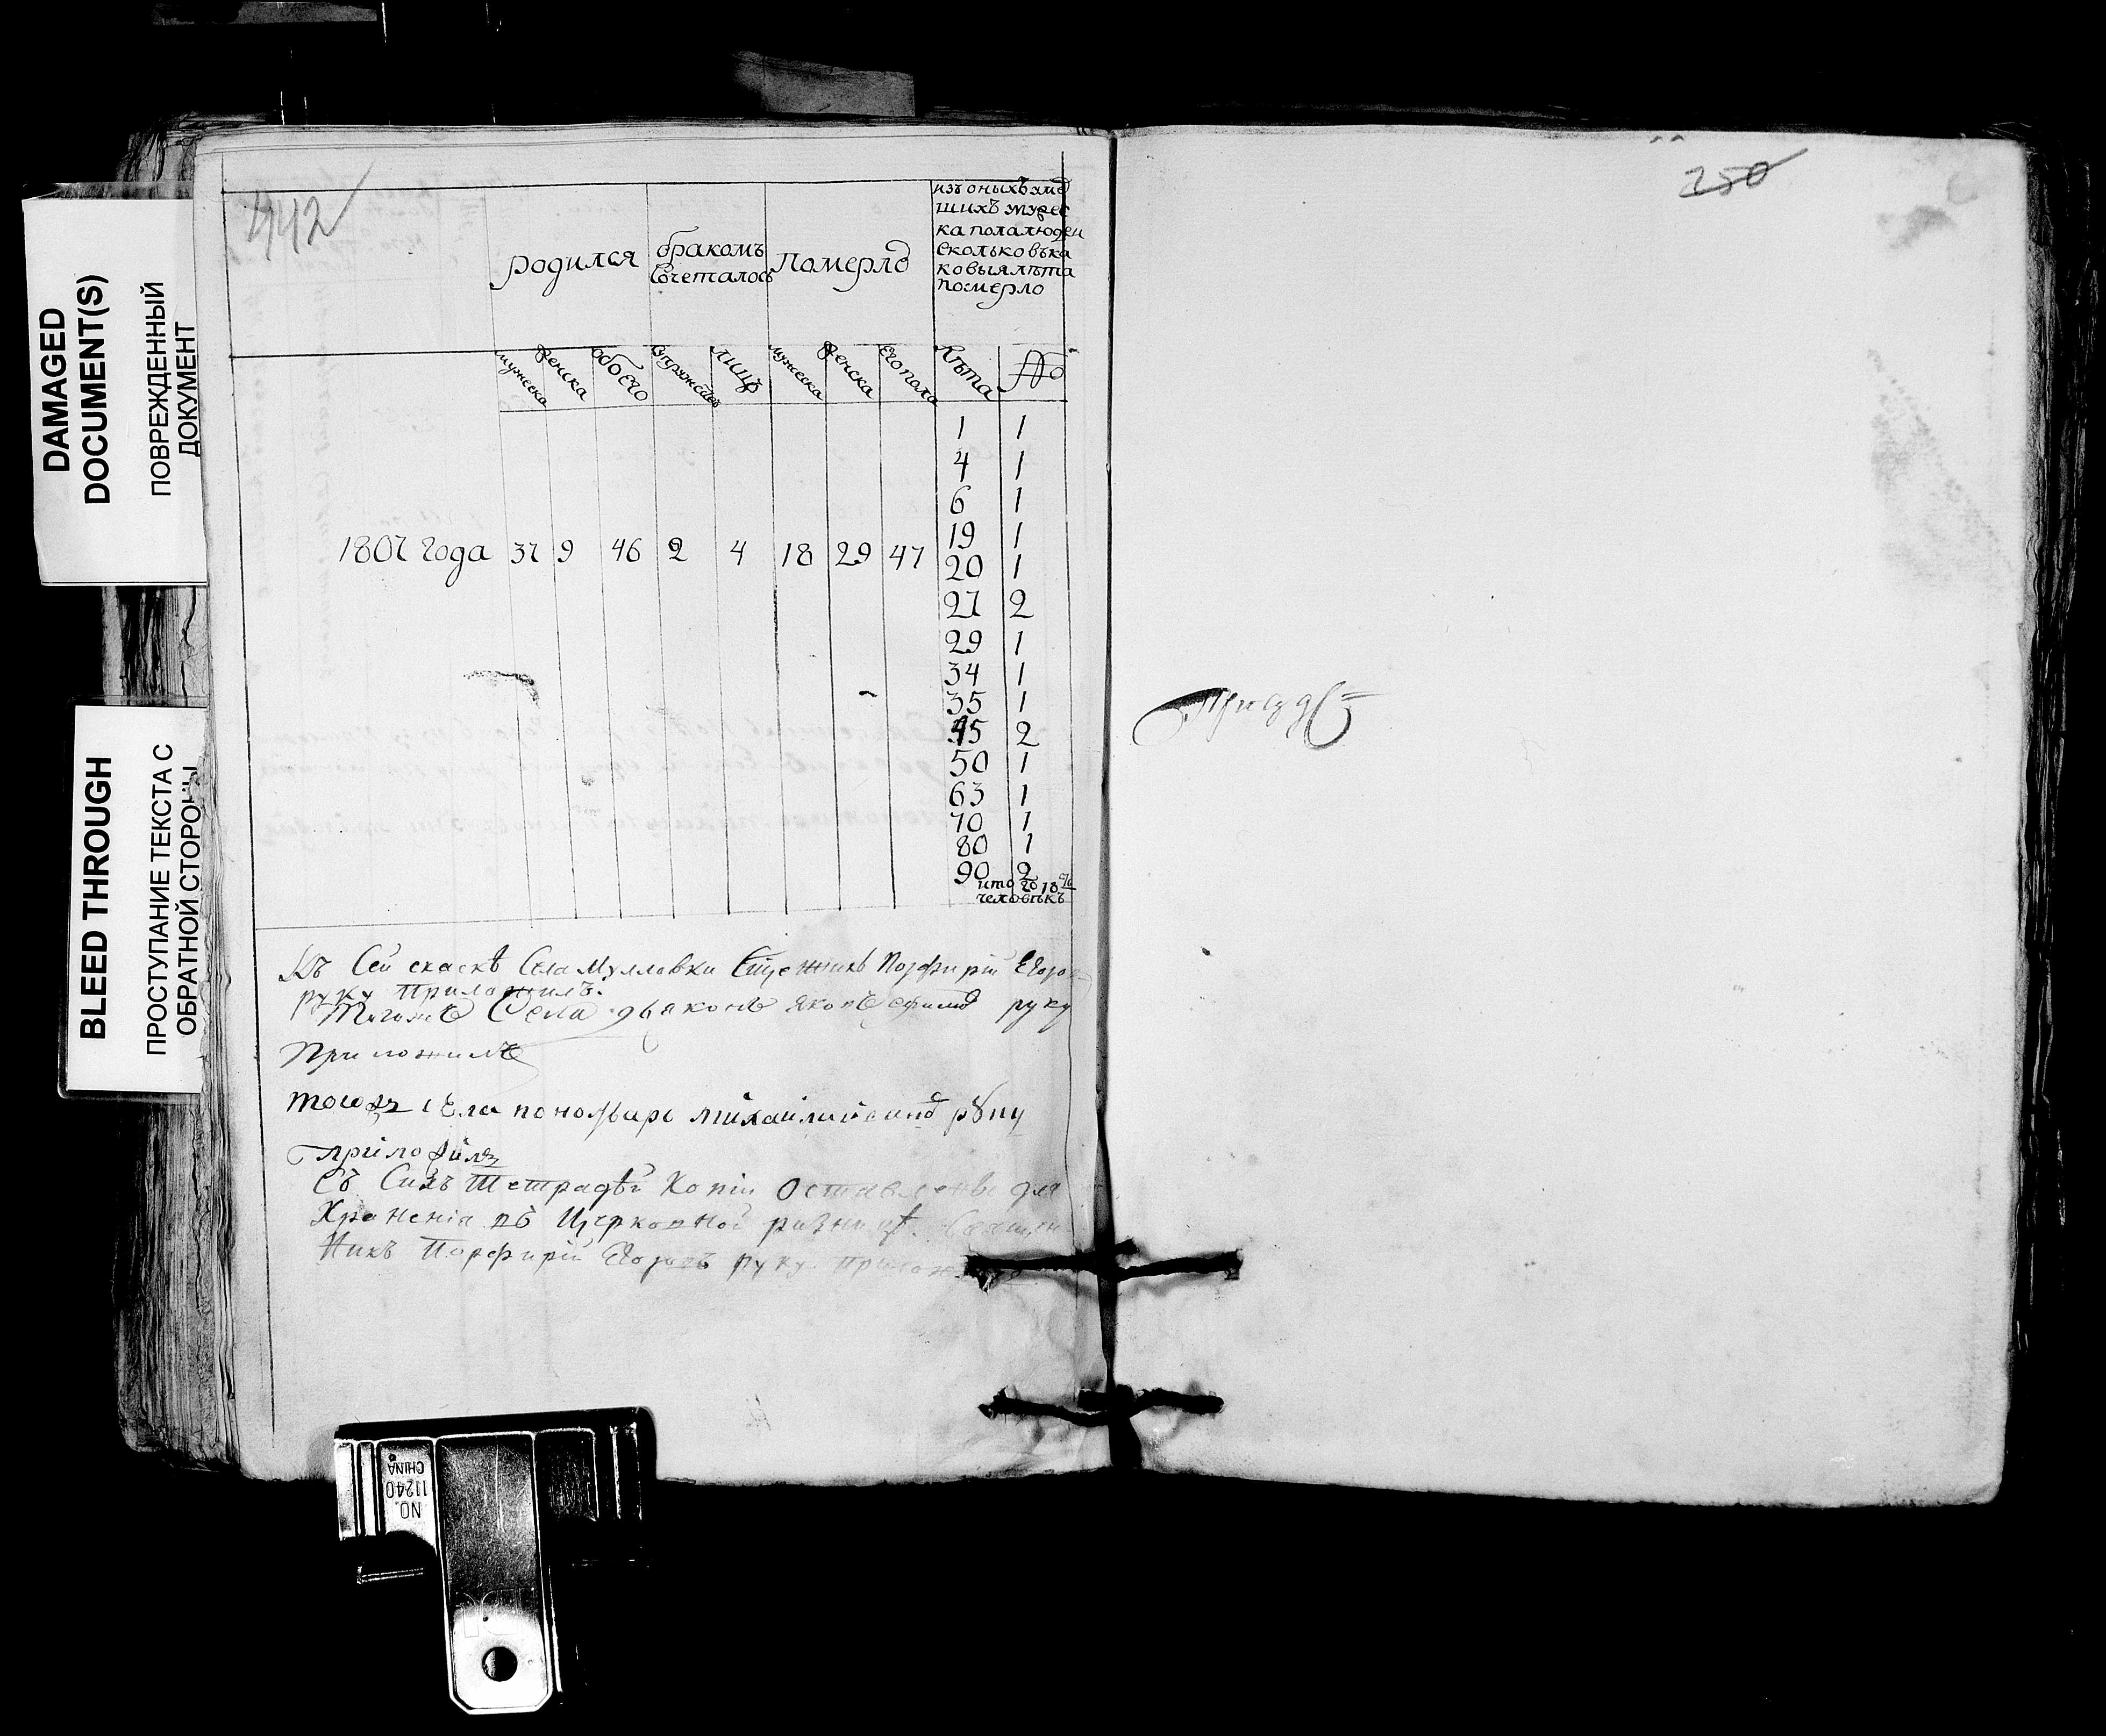 DAMAGED
DOCUMENT(S)
ПОВРЕЖДЕННЫЙ
ДОКУМЕНТ
BLEED THROUGH
ПРОСТУПАНИЕ ТЕКСТА С
ОБРАТНОЙ СТОРОНЫ
442
родился
бракомъ
сочеталось
померло
изъ оныхъ
шихъ мужес
ка пола людей
сколько въ ка
ковыя лѣта
померло
мужеска
женска
обоего
лицъ
мужеска
женска
обоего пола
Лѣта
№
1807 года 37 9 46 2 4 18 29 47
1 1
4 1
6 1
19 1
20 1
27 2
29 1
34 1
35 1
45 2
50 1
63 1
70 1
80 1
90 2
итого 18
человѣкъ
Къ сей скаскѣ села Мулловки Порфирій Егоро
руку приложилъ.
Тогожъ села дьяконъ яковъ руку
приложилъ
тогожъ села пономарь михаило руку
приложилъ
Съ сихъ тетрадѣй копіи оставлены для
Храненія въ Церковной ризницѣ. Священ
никъ Порфирій Егоровъ руку приложилъ
250
NO.
11240
CHINA